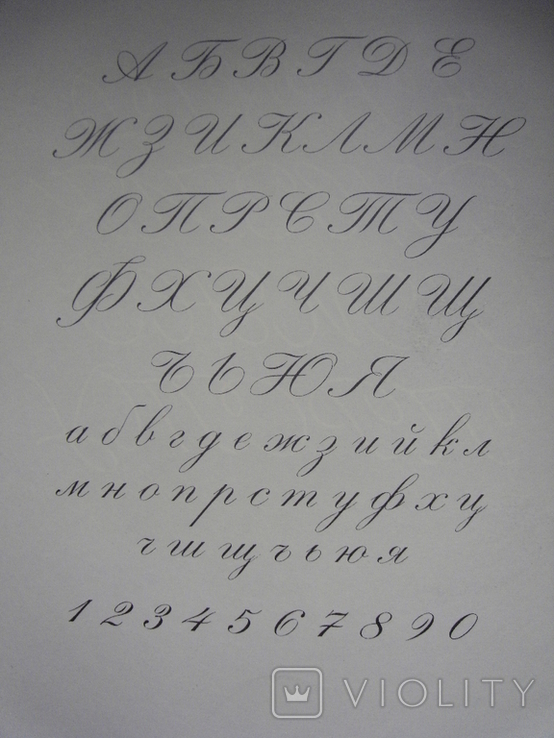 А Б В Г Д Е
Ж З И К Л М Н
О П Р С Т У
Ф Х Ц Ч Ш Щ
Ъ Ь Ю Я
а б в г д е ж з и й к л
м н о п р с т у ф х ц
ч ш щ ъ ь ю я
1 2 3 4 5 6 7 8 9 0
VIOLITY